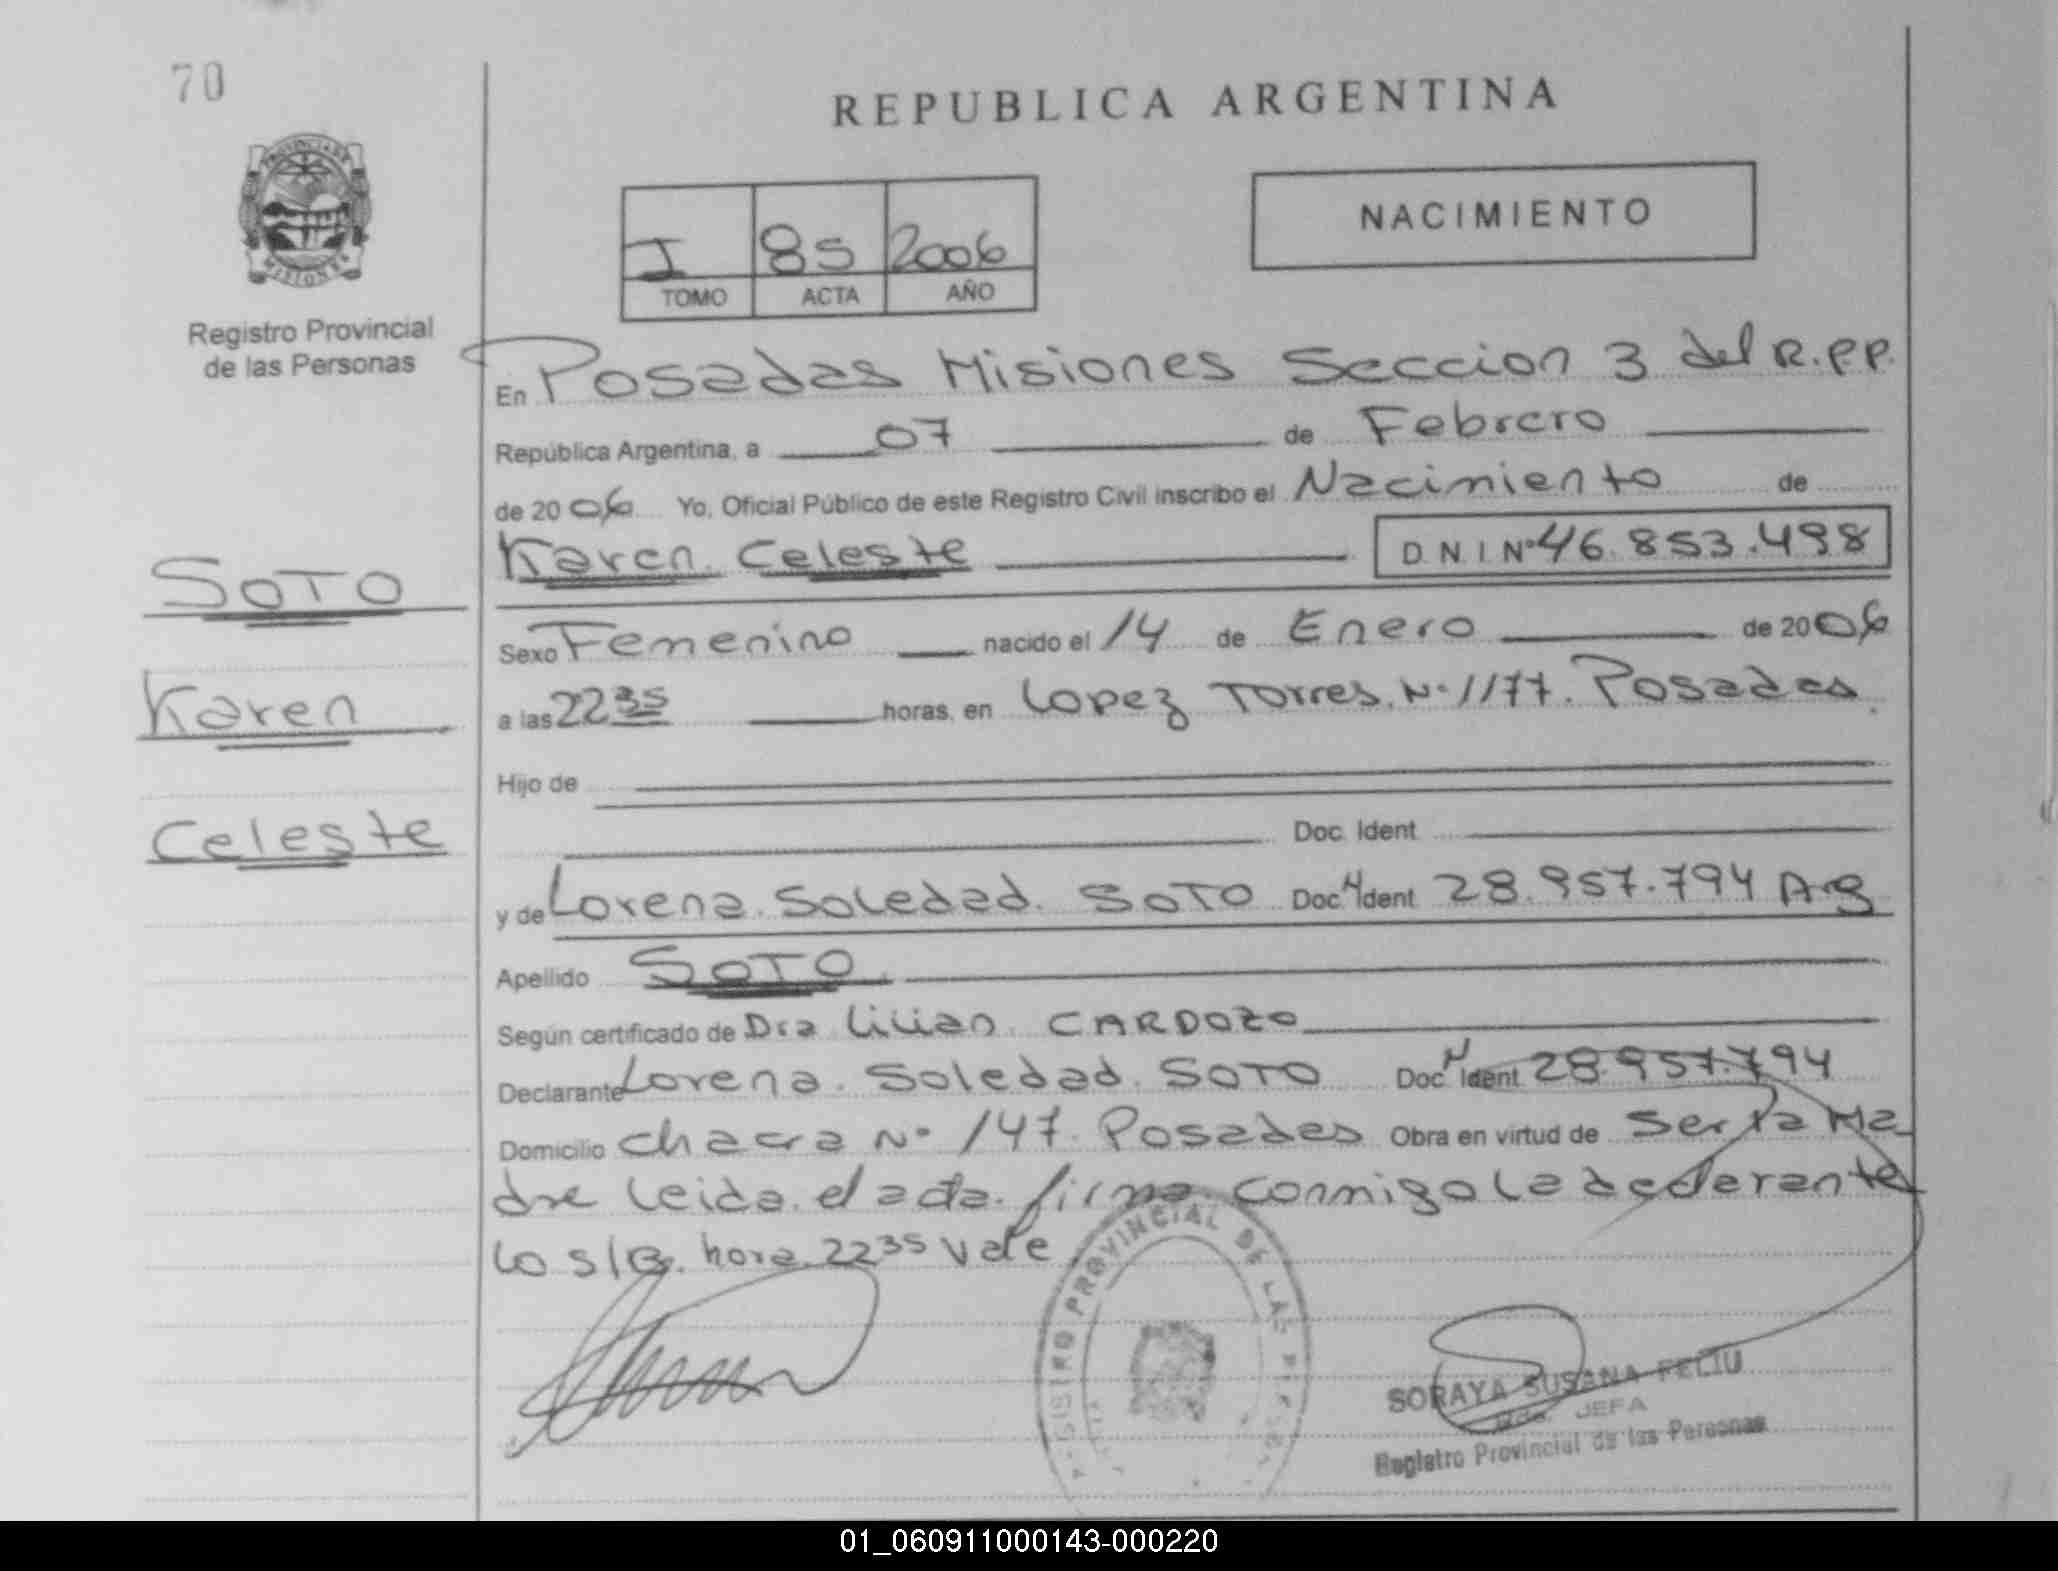 70
REPUBLICA ARGENTINA
NACIMIENTO
I 85 2006
TOMO ACTA AÑO
PROVINCIA DE
MISIONES
Registro Provincial
de las Personas
En Posadas Misiones Seccion 3 del R.P.P.
República Argentina, a 07 de Febrero
de 2006 Yo, Oficial Público de este Registro Civil inscribo el Nacimiento de
Karen Celeste D.N.I. Nº 46.853.498
SOTO
Karen
Celeste
Sexo Femenino nacido el 14 de Enero de 2006
a las 22 35 horas, en Lopez Torres. Nº 1177. Posadas.
Hijo de
Doc. Ident
y de Lorena. Soledad. SOTO Doc N Ident 28.957.794 Arg
Apellido SOTO
Según certificado de Dra Lilian CARDOZO
Declarante Lorena. Soledad. SOTO Doc N Ident 28.957.794
Domicilio chacra Nº 147. Posadas Obra en virtud de Ser la Ma
dre leida. el acta. firma conmigo la declarante
Lo S/B. hora 22 35 vale
REGISTRO PROVINCIAL DE LAS PERSONAS
SORAYA SUSANA FELIU
JEFA
Registro Provincial de las Personas
01_060911000143-000220